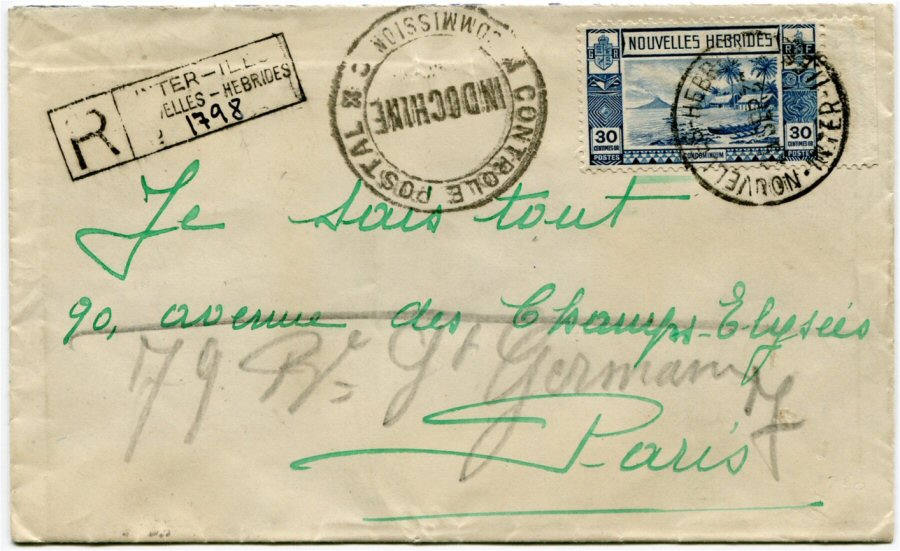 R
INTER-ILES
NOUVELLES-HEBRIDES
1798
CONTROLE POSTAL
COMMISSION
C
INDOCHINE
NOUVELLES HEBRIDES
RF
30
CENTIMES OR
POSTES
CONDOMINIUM
30
CENTIMES OR
POSTES
INTER-ILES
Je sais tout
90, avenue des Champs-Elysées
79 Bd St Germain
7
Paris